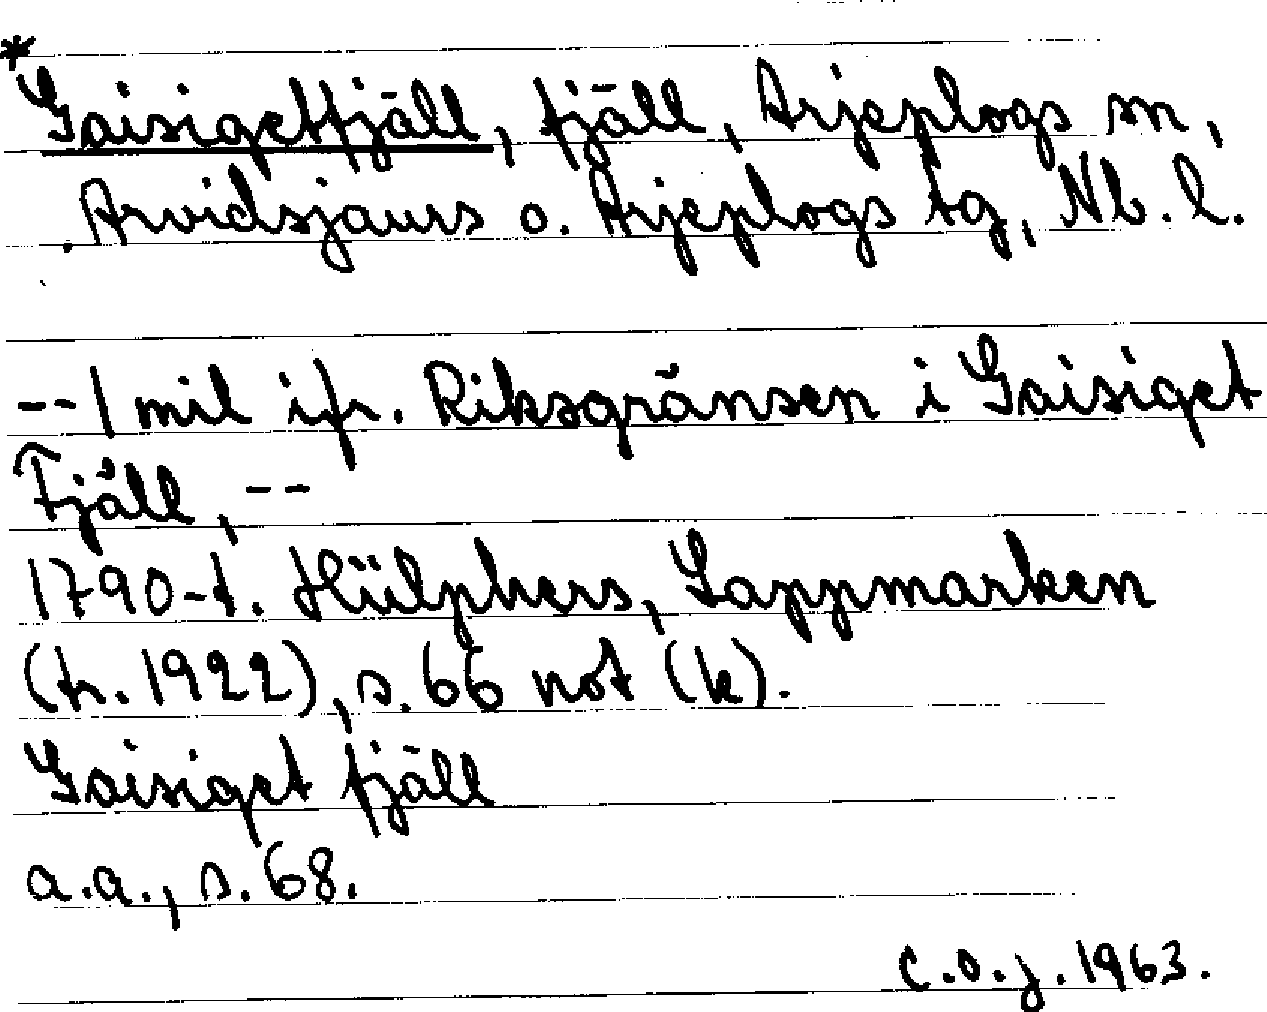 *
Gaisigetfjäll, fjäll, Arjeplogs sn,
Arvidsjaurs o. Arjeplogs tg, Nb. l.
--1 mil ifr. Riksgränsen i Gaisiget
Fjäll, --
1790-t. Hülphers, Lappmarken
(tr. 1922), s. 66 not (k).
Gaisiget fjäll
a.a., s. 68.
C.O.J. 1963.